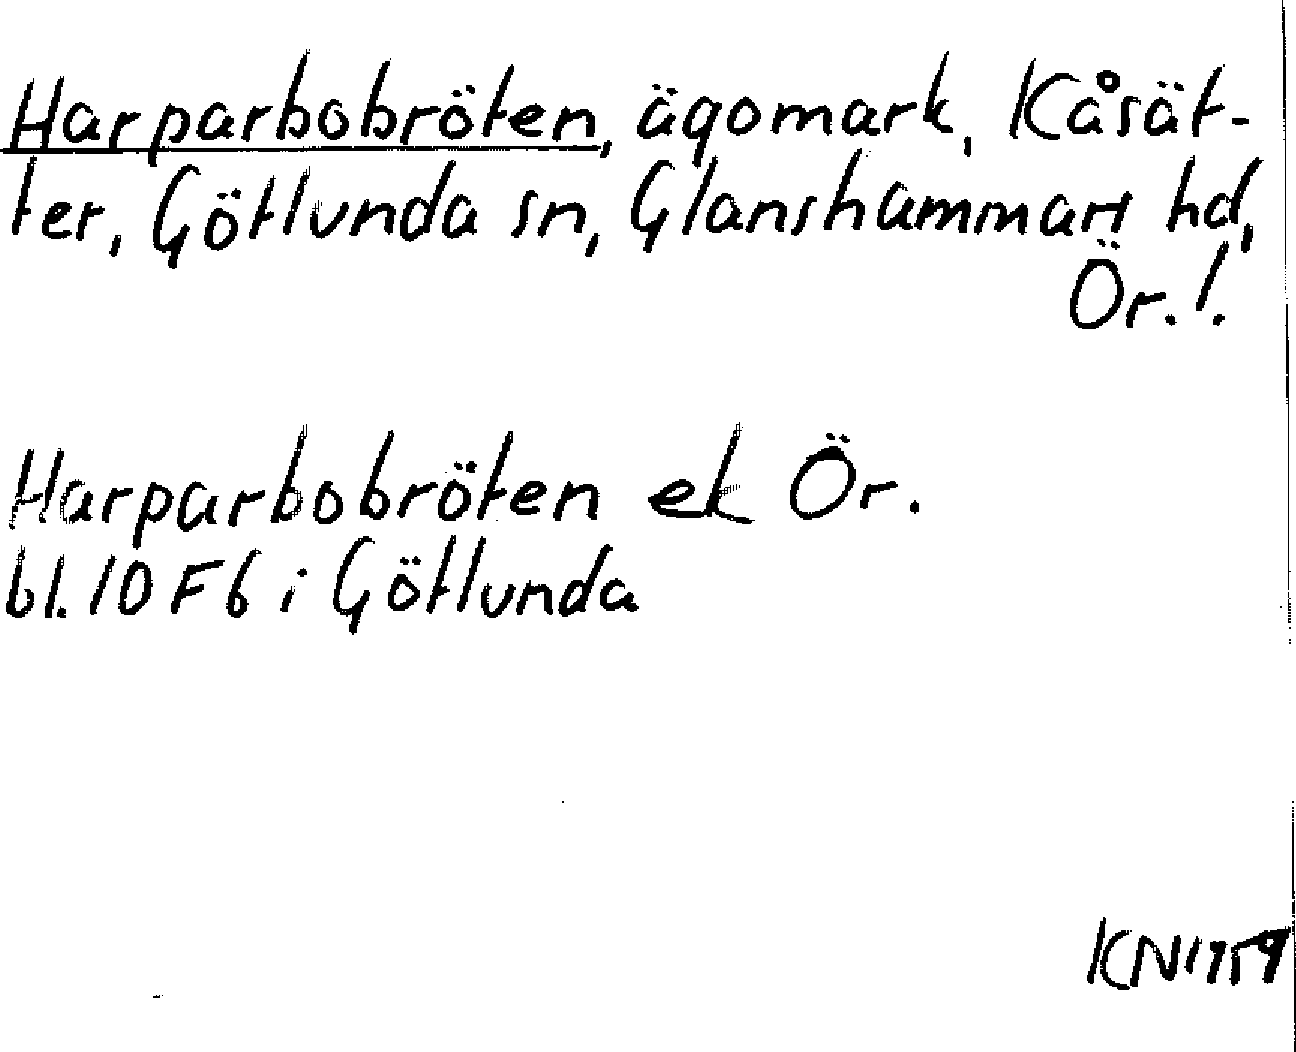 Harparbobröten, ägomark, Kåsät-
ter, Götlunda sn, Glanshammars hd,
Ör. l.
Harparbobröten ek Ör.
bl. 10 F6 i Götlunda
KN 1959